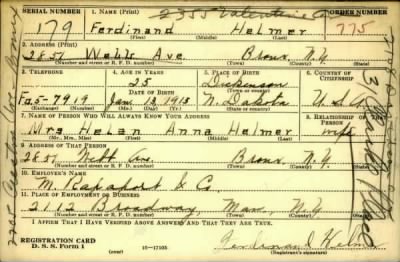 SERIAL NUMBER
1. NAME (Print)
2355 Valentine
ORDER NUMBER
179
Ferdinand Helmer
775
2. ADDRESS (Print)
2857 Webb Ave. Bronx, N.Y.
(Number and street or R. F. D. number) (Town) (County) (State)
3. TELEPHONE
4. AGE IN YEARS
5. PLACE OF BIRTH
6. COUNTRY OF CITIZENSHIP
25
Dickinson
DATE OF BIRTH
(Town or county)
Fo.5-7919
Jan. 13 1915
N. Dakota
U.S.A.
(Exchange) (Number)
(Mo.) (Day) (Yr.)
(State or country)
7. NAME OF PERSON WHO WILL ALWAYS KNOW YOUR ADDRESS
8. RELATIONSHIP OF THAT PERSON
Mrs Helan Anna Helmer wife
(Mr., Mrs., Miss) (First) (Middle) (Last)
9. ADDRESS OF THAT PERSON
2857 Webb Ave. Bronx N.Y.
(Number and street or R. F. D. number) (Town) (County) (State)
10. EMPLOYER'S NAME
M. Rapaport & Co.
11. PLACE OF EMPLOYMENT OR BUSINESS
2112 Broadway, Man., N.Y.
(Number and street or R. F. D. number) (Town) (County) (State)
I AFFIRM THAT I HAVE VERIFIED ABOVE ANSWERS AND THAT THEY ARE TRUE.
REGISTRATION CARD
D. S. S. Form 1
(over)
16-17105
Ferdinand Helmer
(Registrant's signature)